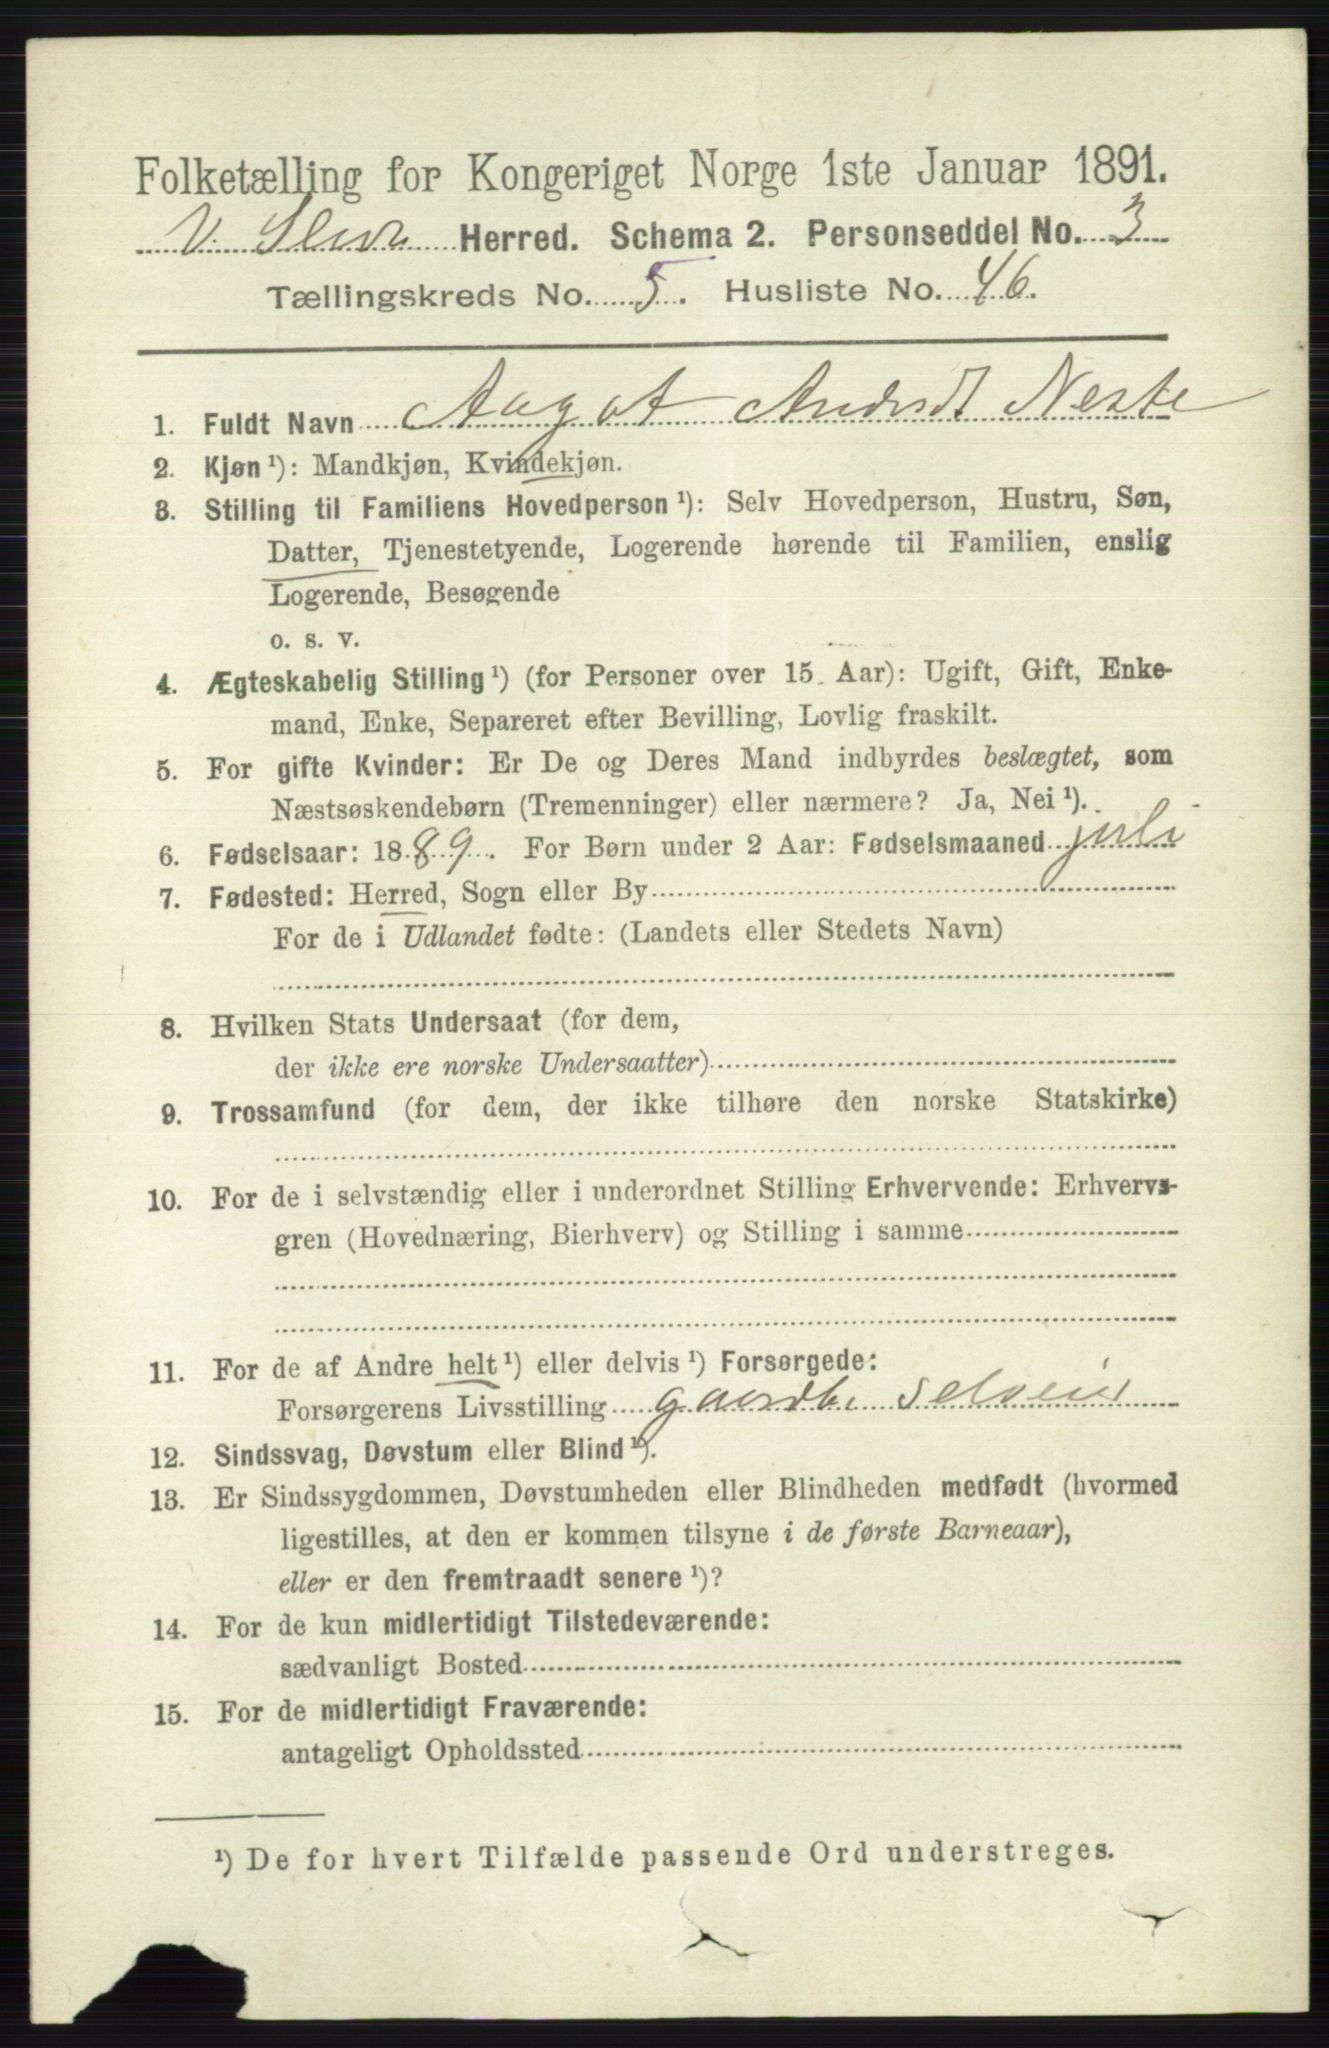 Folketælling for Kongeriget Norge 1ste Januar 1891.
V. Slidre Herred. Schema 2. Personseddel No. 3
Tællingskreds No. 5. Husliste No. 46.
1. Fuldt Navn Aagot Andersdt Neste
2. Kjøn ¹): Mandkjøn, Kvindekjøn.
3. Stilling til Familiens Hovedperson ¹): Selv Hovedperson, Hustru, Søn,
Datter, Tjenestetyende, Logerende hørende til Familien, enslig
Logerende, Besøgende
o. s. v.
4. Ægteskabelig Stilling ¹) (for Personer over 15 Aar): Ugift, Gift, Enke-
mand, Enke, Separeret efter Bevilling, Lovlig fraskilt.
5. For gifte Kvinder: Er De og Deres Mand indbyrdes beslægtet, som
Næstsøskendebørn (Tremenninger) eller nærmere? Ja, Nei ¹).
6. Fødselsaar: 1889. For Børn under 2 Aar: Fødselsmaaned juli
7. Fødested: Herred, Sogn eller By
For de i Udlandet fødte: (Landets eller Stedets Navn)
8. Hvilken Stats Undersaat (for dem,
der ikke ere norske Undersaatter)
9. Trossamfund (for dem, der ikke tilhøre den norske Statskirke)
10. For de i selvstændig eller i underordnet Stilling Erhvervende: Erhvervs-
gren (Hovednæring, Bierhverv) og Stilling i samme
11. For de af Andre helt ¹) eller delvis ¹) Forsørgede:
Forsørgerens Livsstilling gaardbr. selveier
12. Sindssvag, Døvstum eller Blind ¹).
13. Er Sindssygdommen, Døvstumheden eller Blindheden medfødt (hvormed
ligestilles, at den er kommen tilsyne i de første Barneaar),
eller er den fremtraadt senere ¹)?
14. For de kun midlertidigt Tilstedeværende:
sædvanligt Bosted
15. For de midlertidigt Fraværende:
antageligt Opholdssted
¹) De for hvert Tilfælde passende Ord understreges.